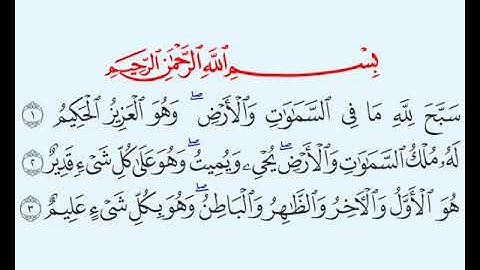 بِسْمِ ٱللَّهِ ٱلرَّحْمَٰنِ ٱلرَّحِيمِ
سَبَّحَ لِلَّهِ مَا فِي السَّمَٰوَٰتِ وَالْأَرْضِ ۖ وَهُوَ الْعَزِيزُ الْحَكِيمُ ١
لَهُۥ مُلْكُ السَّمَٰوَٰتِ وَالْأَرْضِ ۖ يُحْيِۦ وَيُمِيتُ ۖ وَهُوَ عَلَىٰ كُلِّ شَيْءٍ قَدِيرٌ ٢
هُوَ الْأَوَّلُ وَالْآخِرُ وَالظَّٰهِرُ وَالْبَاطِنُ ۖ وَهُوَ بِكُلِّ شَيْءٍ عَلِيمٌ ٣